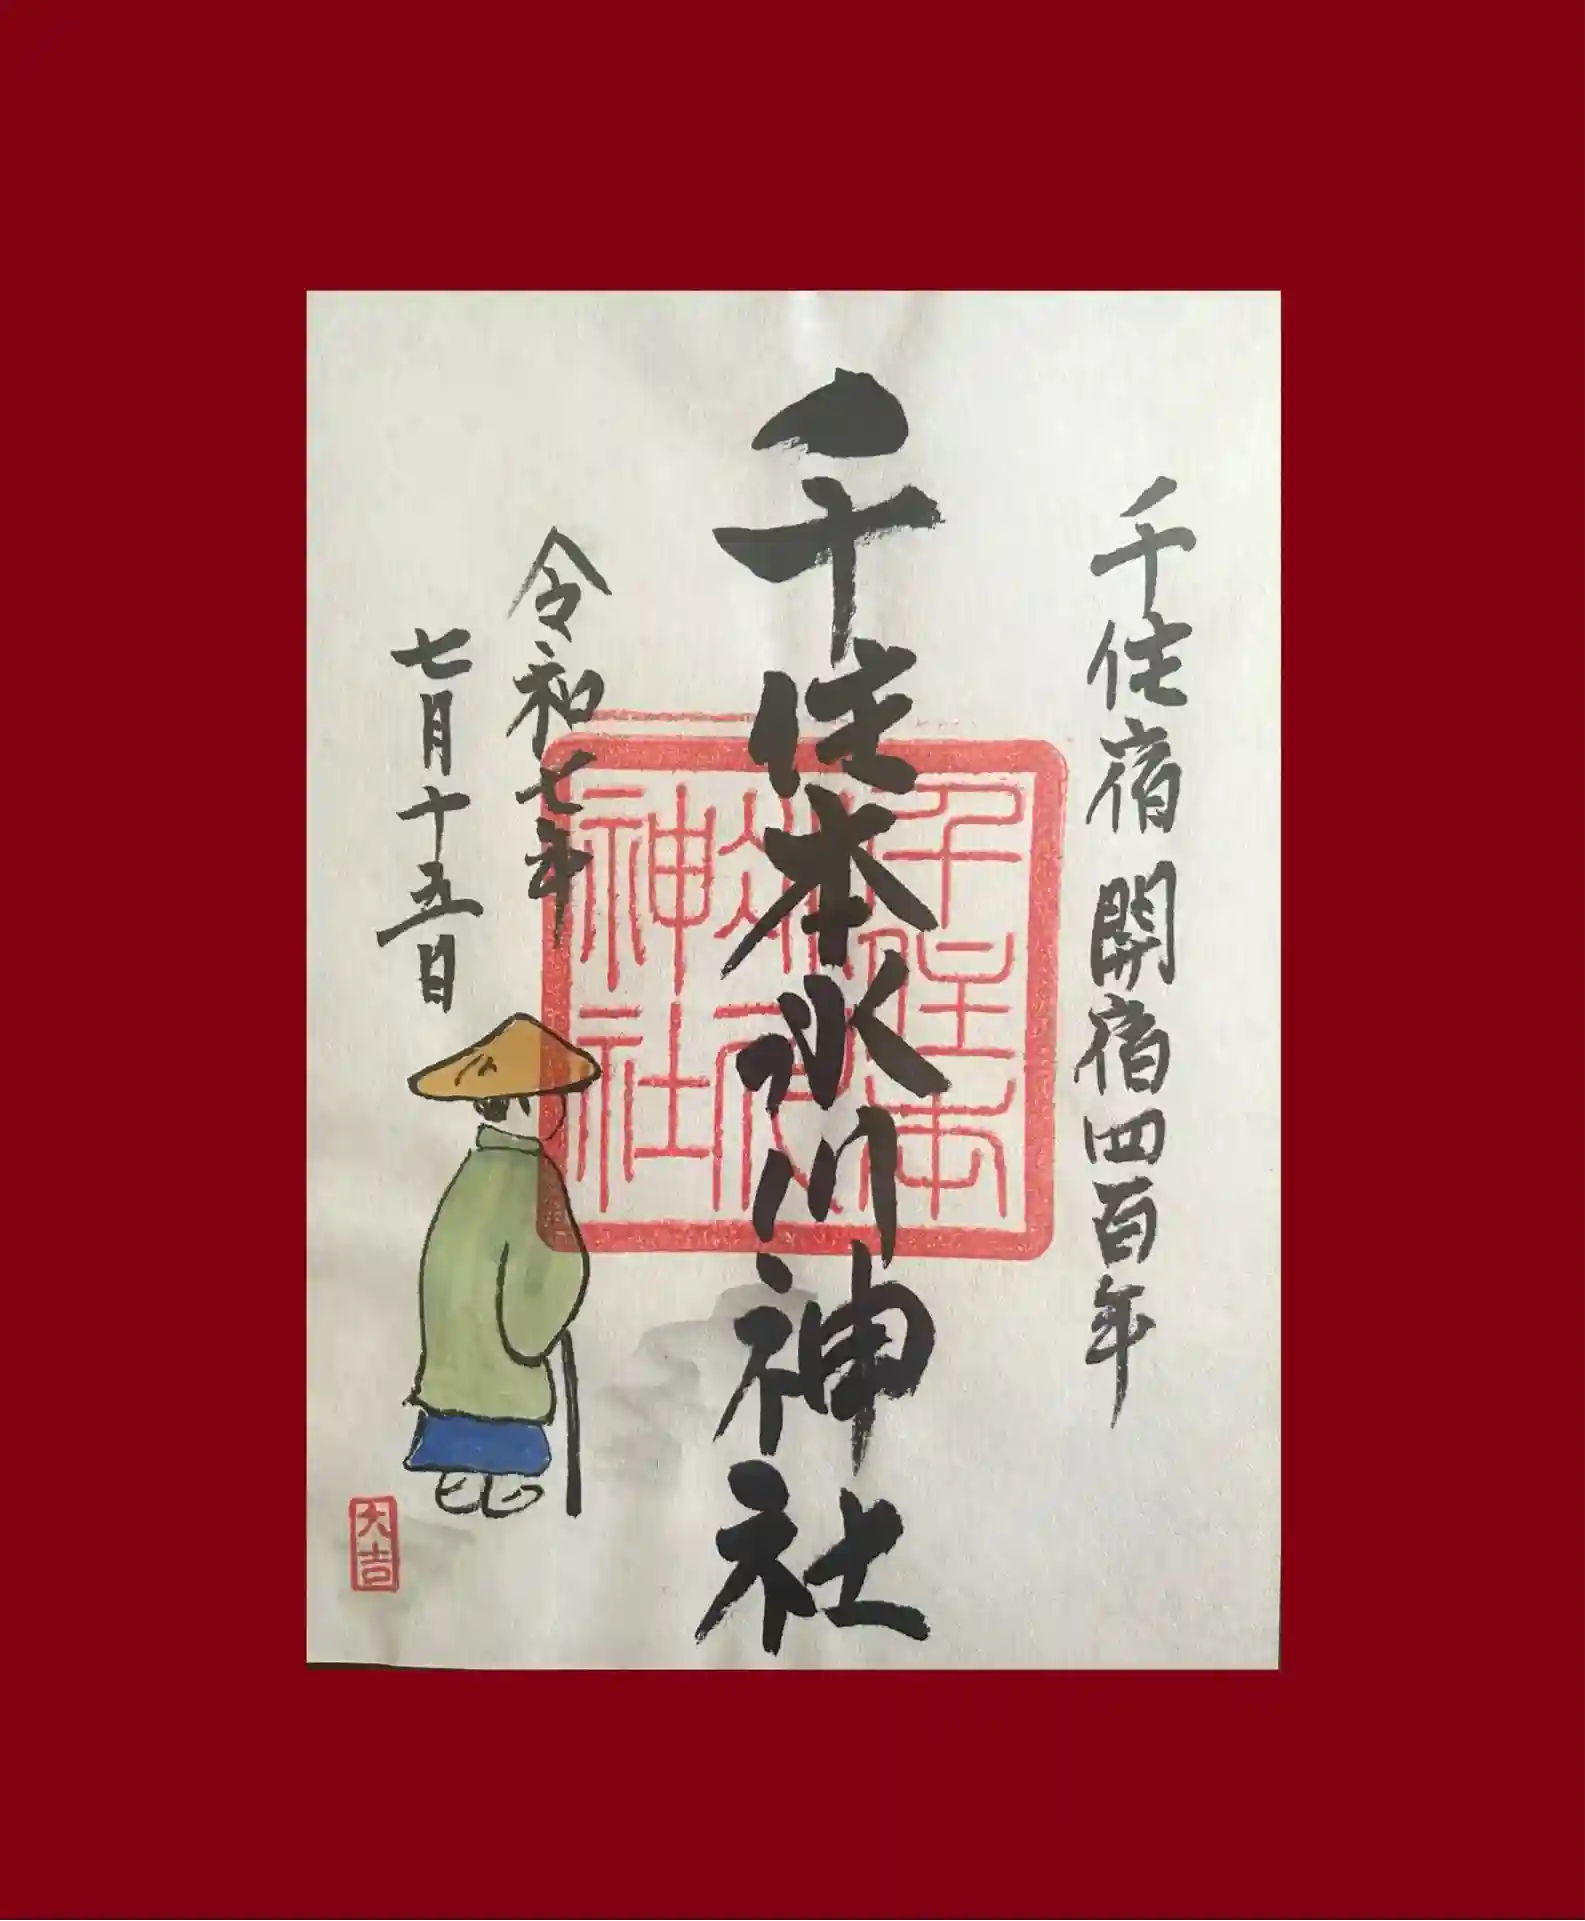 千住宿 開宿四百年
千住本氷川神社
千住本
氷川
神社
令和七年
七月十五日
大吉